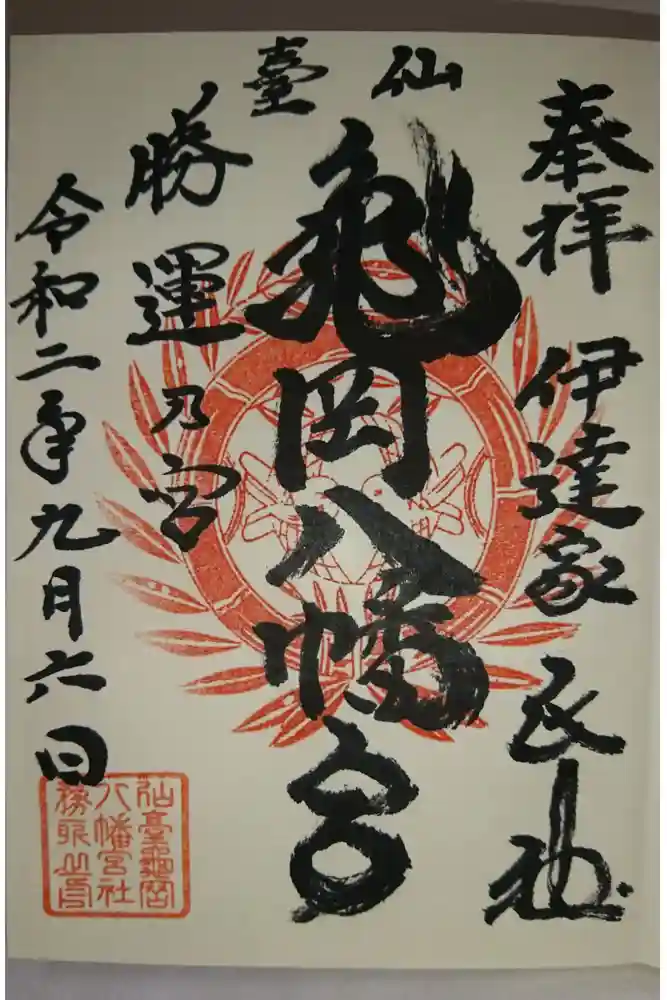 奉拝 伊達家氏神
仙臺
亀岡八幡宮
勝運乃宮
令和二年九月六日
仙臺龜岡
八幡宮社
務所之印